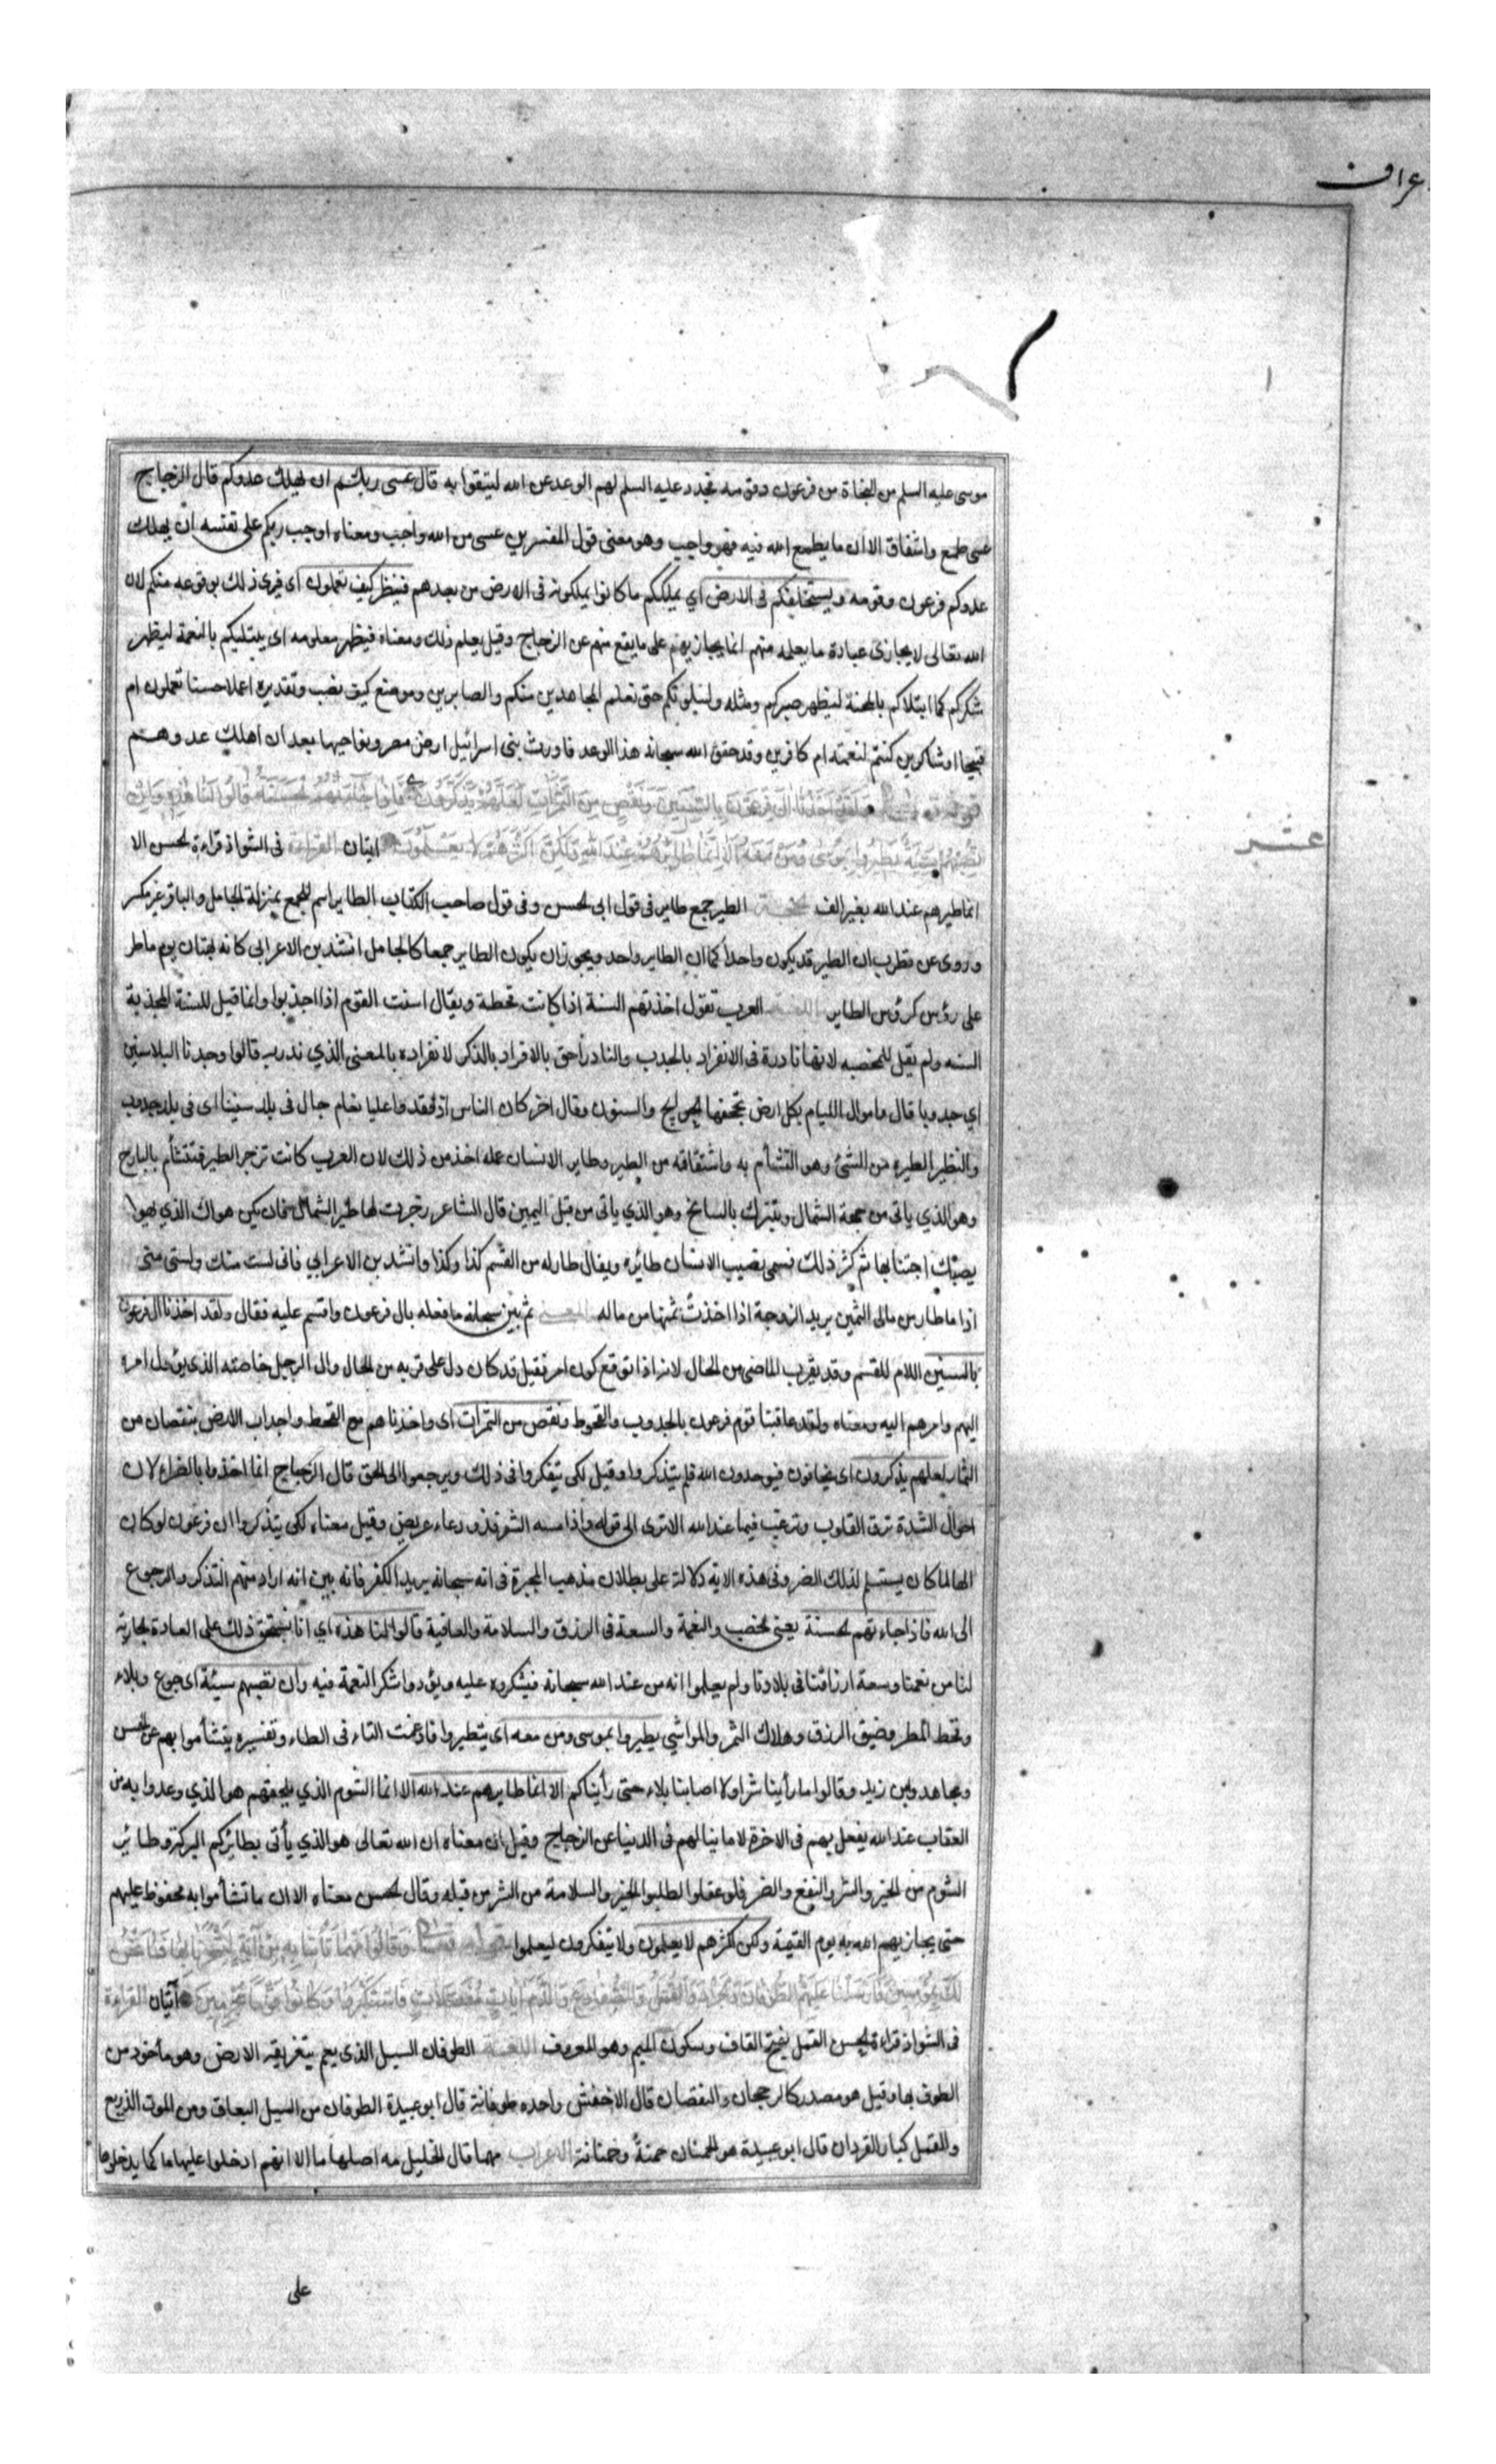 عراف
موسى عليه السلم من النجاة من فرعون وقومه فجدد عليه السلم لهم الوعد عن الله ليتقوا به قال عسى ربكم ان يهلك عدوكم قال الزجاج
عسى طمع واشفاق الا ان ما يطمع الله فيه فهو واجب وهو معنى قول المفسرين عسى من الله واجب ومعناه اوجب ربكم على نفسه ان يهلك
عدوكم فرعون وقومه ويستخلفكم في الارض اي يملككم ما كانوا يملكونه في الارض من بعدهم فينظر كيف تعملون اى فيرى ذلك بوقوعه منكم لان
الله تعالى لا يجازى عباده ما يعلمه منهم انما يجازيهم على ما يقع منهم عن الزجاج وقيل يعلم ذلك ومعناه فيظهر معلومه اى يبتليكم بالنعمة ليظهر
شكركم كما ابتلاكم بالمحنة ليظهر صبركم ومثله ولنبلونكم حتى نعلم المجاهدين منكم والصابرين وموضع كيف نصب وتقديره اعملا حسنا تعملون ام
قبيحا اوشاكرين كنتم لنعمته ام كافرين وقد حقق الله سبحانه هذا الوعد فاورث بني اسرائيل ارض مصر ونواحيها بعد ان اهلك عدوهم
قوله تعالى ولقد اخذنا ال فرعون بالسنين ونقص من الثمرات لعلهم يذكرون فاذا جاءتهم الحسنة قالوا لنا هذه وان
تصبهم سيئة يطيروا بموسى ومن معه الا انما طائرهم عند الله ولكن اكثرهم لا يعلمون ايتان القراءة في الشواذ قراءة الحسن الا
عشر
انما طيرهم عند الله بغير الف الحجة الطير جمع طاير في قول ابي الحسن وفي قول صاحب الكتاب الطاير اسم للجمع بمنزلة الجامل والباقر غير مكسر
وروى عن قطرب ان الطير قد يكون واحدا كما ان الطاير واحد ويجوز ان يكون الطاير جمعا كالجامل انشد بن الاعرابي كانه تهتان يوم ماطر
على رؤس كرؤس الطاير اللغة العرب تقول اخذتهم السنة اذا كانت قحطة ويقال اسنت القوم اذا اجدبوا وانما قيل للسنة المجدبة
السنه ولم يقل للمخصبه لانها نادرة في الانفراد بالجدب والنادر احق بالافراد بالذكر لانفراده بالمعنى الذي ندر به قالوا وجدنا البلاد سنين
اي جدوبا قال واموال اللئام بكل ارض تجحفها الجوايح والسنون وقال اخر كان الناس اذ فقدوا عليا نعام جال في بلد سنينا اى في بلد جدوب
والتطير الطيره من الشئ وهو التشأم به واشتقاقه من الطير وطاير الانسان عمله اخذ من ذلك لان العرب كانت تزجر الطير فتتشأم بالبارح
وهو الذي ياتي من جهة الشمال وتتبرك بالسانح وهو الذي ياتي من قبل اليمين قال الشاعر زجرت لها طير الشمال فان يكن هواك الذي تهوا
يصبك اجتنابها ثم كثر ذلك فسمى نصيب الانسان طائره ويقال طار له من القسم كذا وكذا وانشد بن الاعرابي فاني لست منك ولست مني
اذا ما طار من مالي الثمين يريد الزوجة اذا اخذت ثمنها من ماله المعنى ثم بين سبحانه ما فعله بال فرعون واقسم عليه فقال ولقد اخذنا ال فرعون
بالسنين اللام للقسم وقد يقرب الماضي من الحال لانه اذا توقع كون امر فقيل قد كان دل على قربه من الحال وال الرجل خاصته الذي يؤل امره
اليهم وامرهم اليه ومعناه ولقد عاقبنا قوم فرعون بالجدوب والقحوط ونقص من الثمرات اى واخذناهم مع القحط واجداب الارض بنقصان من
الثمار لعلهم يذكرون اى يخافون فيوحدون الله فلم يتذكروا وقيل لكى يتفكروا في ذلك ويرجعوا الى الحق قال الزجاج انما اخذوا بالضراء لان
احوال الشدة ترق القلوب وترغب فيما عند الله الا ترى الى قوله واذا مسه الشر فذو دعاء عريض وقيل معناه لكى يتذكروا ان فرعون لو كان
الها لما كان يستسلم لذلك الضر وفي هذه الاية دلالة على بطلان مذهب المجبرة في انه سبحانه يريد الكفر فانه بين انه اراد منهم التذكر والرجوع
الى الله فاذا جاءتهم الحسنة يعني الخصب والنعمة والسعة في الرزق والسلامة والعافية قالوا لنا هذه اى انا نستحق ذلك على العادة الجارية
لنا من نعمنا وسعة ارزاقنا في بلادنا ولم يعلموا انه من عند الله سبحانه فيشكروه عليه ويؤدوا شكر النعمة فيه وان تصبهم سيئة اى جوع وبلاء
وقحط المطر وضيق الرزق وهلاك الثمر والمواشي يطيروا بموسى ومن معه اى يتطيروا فادغمت التاء في الطاء وتفسيره يتشأموا بهم عن الحسن
ومجاهد وبن زيد وقالوا ما رأينا شرا ولا اصابنا بلاء حتى رأيناكم الا انما طايرهم عند الله الا انما الشوم الذي يلحقهم هو الذي وعدوا به من
العقاب عند الله يفعل بهم في الاخرة لا ما ينالهم في الدنيا عن الزجاج وقيل ان معناه ان الله تعالى هو الذي يأتى بطائركم البركة وطائر
الشوم من الخير والشر والنفع والضر فلو عقلوا لطلبوا الخير والسلامة من الشر من قبله وقال الحسن معناه الا ان ما تشأموا به محفوظ عليهم
حتى يجازيهم الله به يوم القيمة ولكن اكثرهم لا يعلمون ولا يتفكرون ليعلموا قوله تعالى وقالوا مهما تأتنا به من آية لتسحرنا بها فما نحن
لك بمؤمنين فارسلنا عليهم الطوفان والجراد والقمل والضفادع والدم آيات مفصلات فاستكبروا وكانوا قوما مجرمين آيتان القراءة
في الشواذ قراءة الحسن القمل بفتح القاف وسكون الميم وهو المعروف اللغة الطوفان السيل الذى يعم بتغريقه الارض وهو مأخوذ من
الطوف بها وقيل هو مصدر كالرجحان والنقصان قال الاخفش واحده طوفانة قال ابو عبيدة الطوفان من السيل البعاق ومن الموت الذريع
والقمل كبار القردان قال ابو عبيدة هو الحمنان حمنة وحمنانة الاعراب مهما قال الخليل مه اصلها ما الا انهم ادخلوا عليها ما كما يدخلوها
على